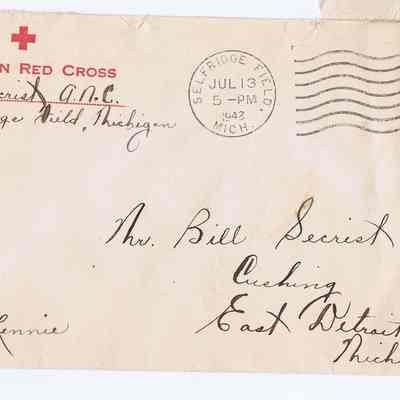 N RED CROSS
crist A.N.C.
ge Field, Michigan
SELFRIDGE FIELD,
JUL 13
5-PM
1943
MICH.
Mr. Bill Secrist
Cushing
East Detroit
Mich
ennie